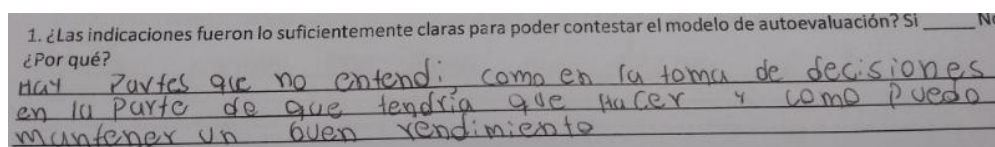 1. ¿Las indicaciones fueron lo suficientemente claras para poder contestar el modelo de autoevaluación? Si ______ N
¿Por qué?
Hay Partes que no entendi; como en la toma de decisiones
en la parte de que tendría que Hacer y como puedo
mantener un buen rendimiento